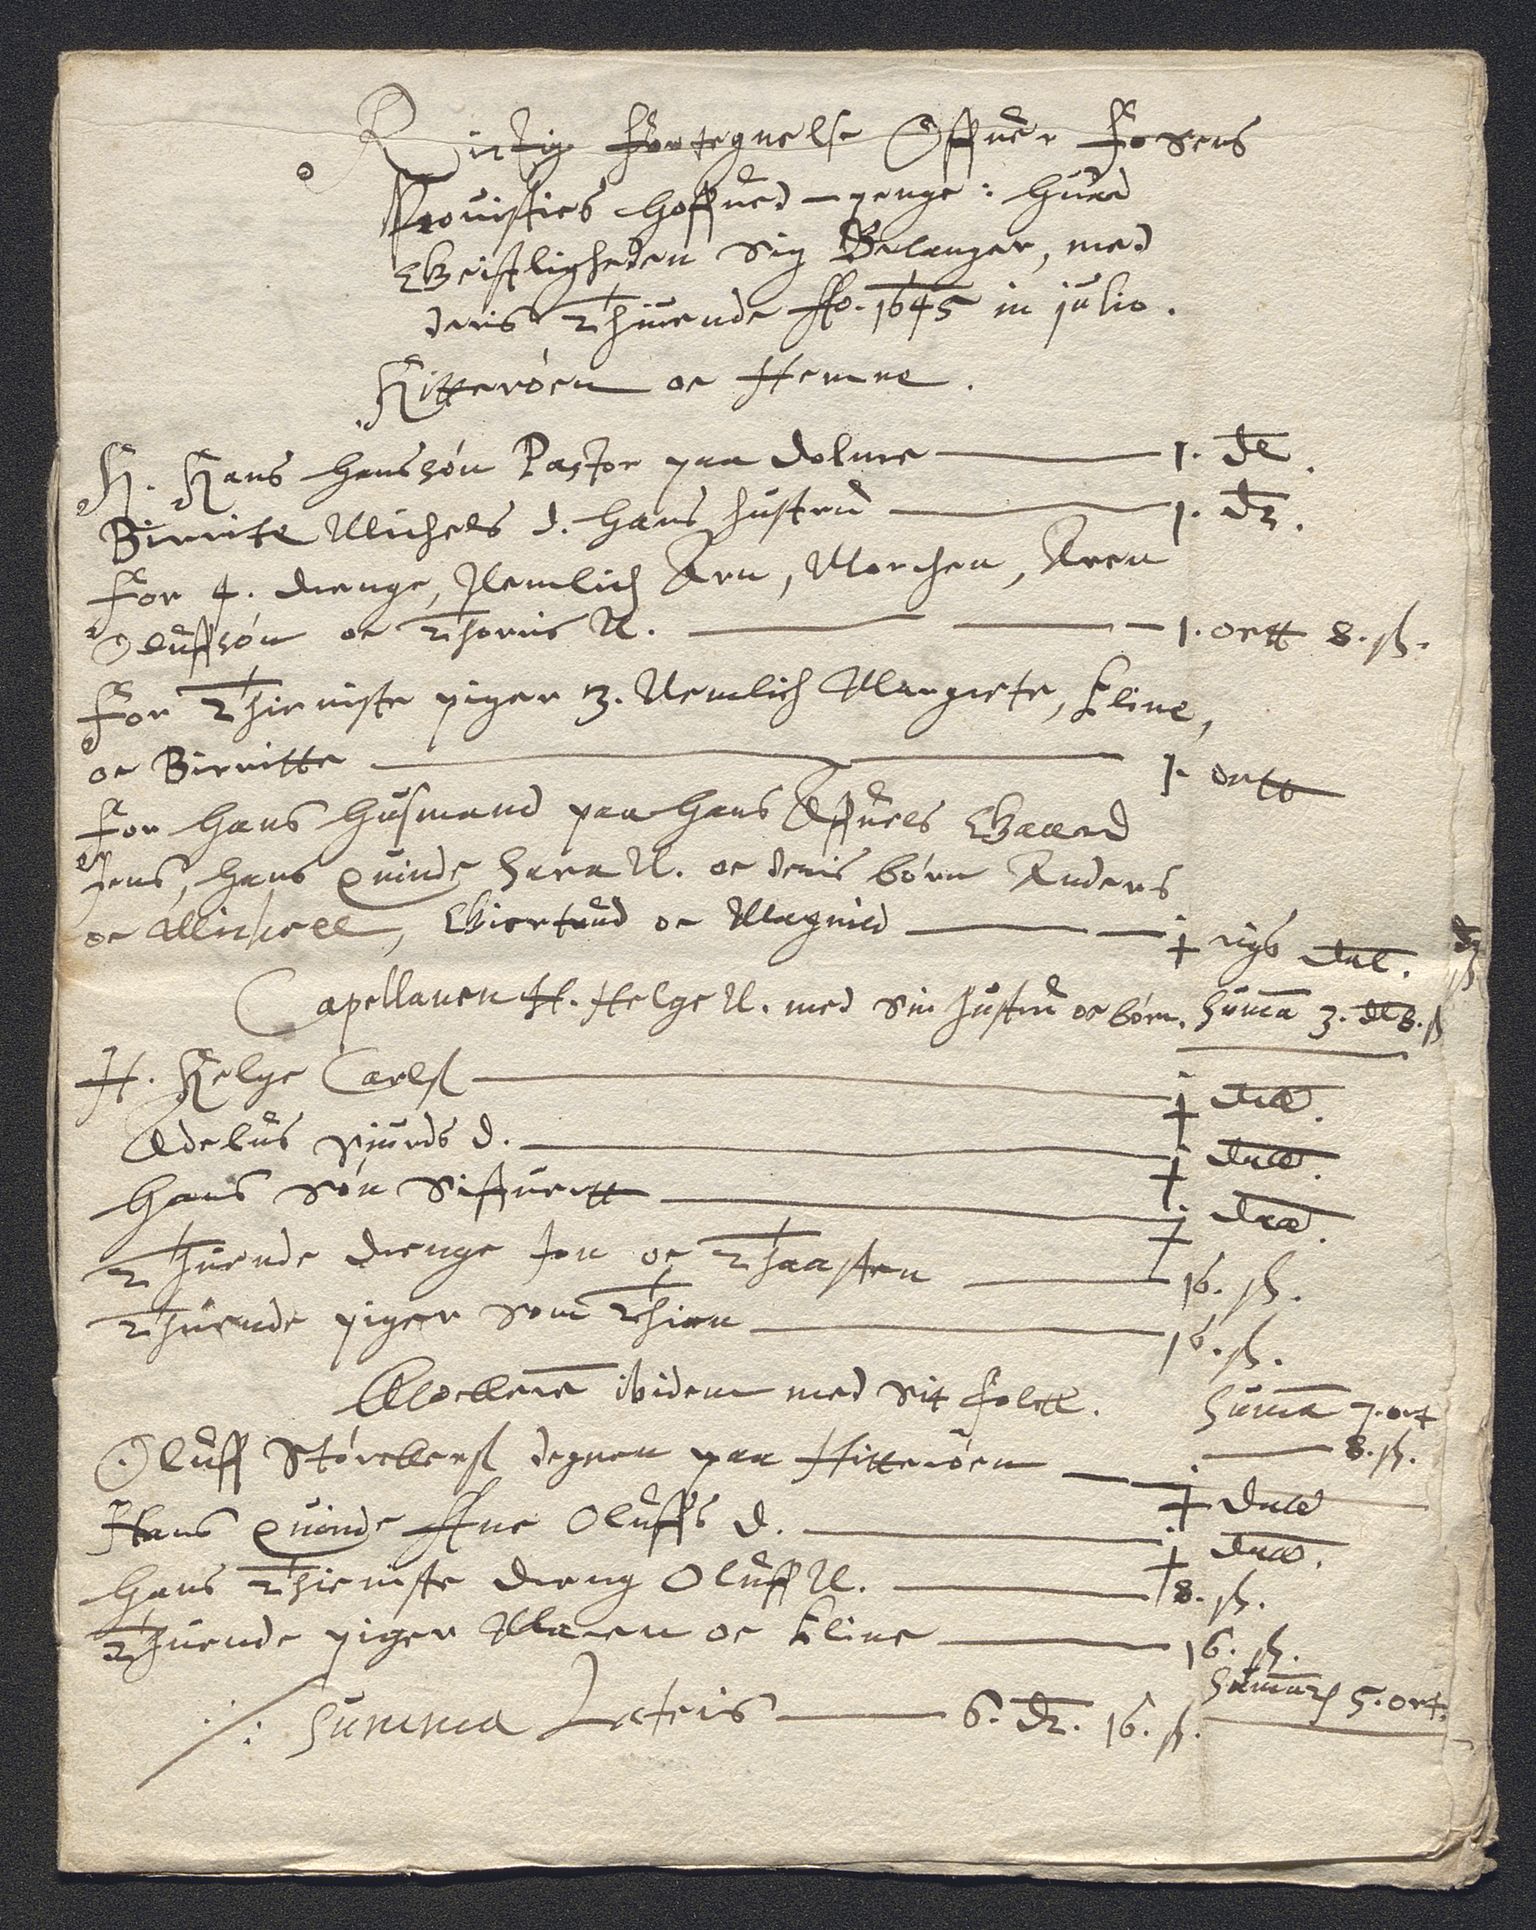 Rictig Fortegnelse Offuer Fosens
Prouisties hoffued-penge: huad
Geistligheden sig Belanger, med
deris Thiuende Ao. 1645 in julio.
Hitterøen oc Hemne.
H. Hans Hanssøn Pastor paa Dolme — 1. dl.
Birrite Michels d. hans hustru — 1. dr.
For 4. drenge, Nemlich Arn, Morthen, Aren
Oluffsøn oc Thorris N. — 1. ortt 8. ß.
For Thieniste piger 3. Nemlich Margrete, Eline,
oc Birritte — 1. ortt
For hans Husmand paa hans Affuels Gaard
Jens, hans quinde Sara N. oc deris børn Anders
oc Michell, Giertrud oc Magnild — ½ rigs dal.
Capellanen H. Helge N. med sin hustru oc børn. Suma 3. dl 8. ß
H. Helge Carlß — ½ dal.
Adelus Siurds d. — ½ dal.
Hans søn Siffuertt — ½ dal.
Thuende drenge Jon oc Thaasten — 16. ß.
Thuende piger som Thien — 16. ß.
Klockere ibidem med sit folck. Suma 7. ort
8. ß.
Oluff Størckerß degnen paa Hitterøen — ½ dal
Hans quinde Ane Oluffs d. — ½ dal.
Hans Thieniste dreng Oluff N. — 8. ß.
Thuende piger Maren oc Eline — 16. ß.
Summa 5. ort.
Summa Lateris — 6. dr. 16. ß.